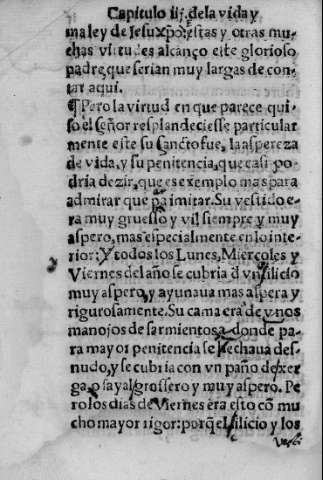 Capitulo iij. de la vida y
ma ley de Jesu xp̃o: estas y otras mu-
chas virtudes alcanço este glorioso
padre, que serian muy largas de con-
tar aqui.
¶ Pero la virtud en que parece qui-
so el señor resplandeciesse particular
mente este su sancto fue, la aspereza
de vida, y su penitencia, que casi po-
dria dezir, que es exemplo mas para
admirar que pa imitar. Su vestido e-
ra muy gruesso y vil siempre y muy
aspero, mas especialmente en lo inte-
rior: Y todos los Lunes, Miercoles y
Viernes del año se cubria d̃ vn silicio
muy aspero, y ayunaua mas aspera y
rigurosamente. Su cama era de vnos
manojos de sarmientos a donde pa-
ra mayor penitencia se hechaua des-
nudo, y se cubria con vn paño de xer
ga, o sayal grossero y muy aspero. Pe
ro los dias de Viernes era esto cõ mu
cho mayor rigor: porq̃ el silicio y los